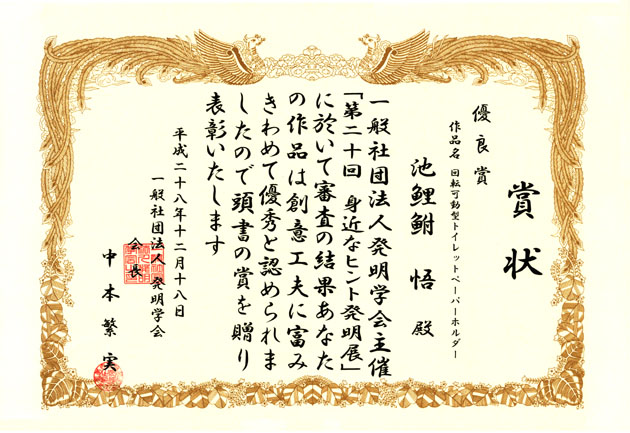 賞状
優良賞
作品名 回転可動型トイレットペーパーホルダー
池鯉鮒 悟 殿
一般社団法人発明学会主催
「第二十回 身近なヒント発明展」
に於いて審査の結果あなた
の作品は創意工夫に富み
きわめて優秀と認められま
したので頭書の賞を贈り
表彰いたします
平成二十八年十二月十八日
一般社団法人発明学会
会長
中本繁実